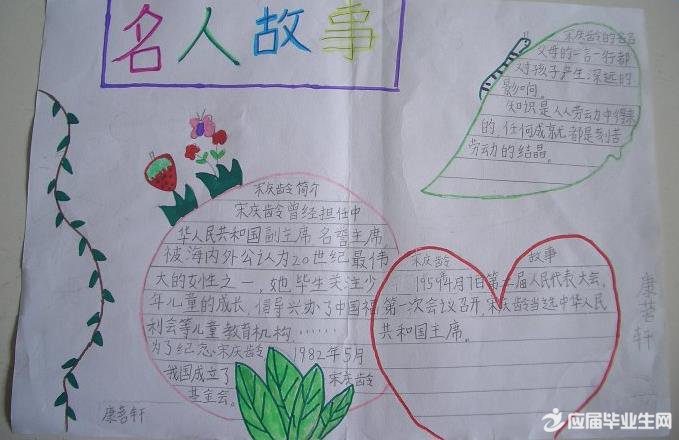 名人故事
宋庆龄的名言
父母的一言一行都
对孩子产生深远的
影响。
知识是人人劳动中得来
的，任何成就都是刻苦
劳动的结晶。
宋庆龄简介
宋庆龄曾经担任中
华人民共和国副主席 名誉主席，
被海内外公认为20世纪最伟
大的女性之一，她毕生关注少
年儿童的成长，倡导兴办了中国福
利会等儿童教育机构……
为了纪念宋庆龄 1982年5月
我国成立了 宋庆龄
基金会。
宋庆龄 故事
1959年4月7日第二届人民代表大会，
第一次会议召开，宋庆龄当选中华人民
共和国主席。
康菩轩
康菩轩
应届毕业生网